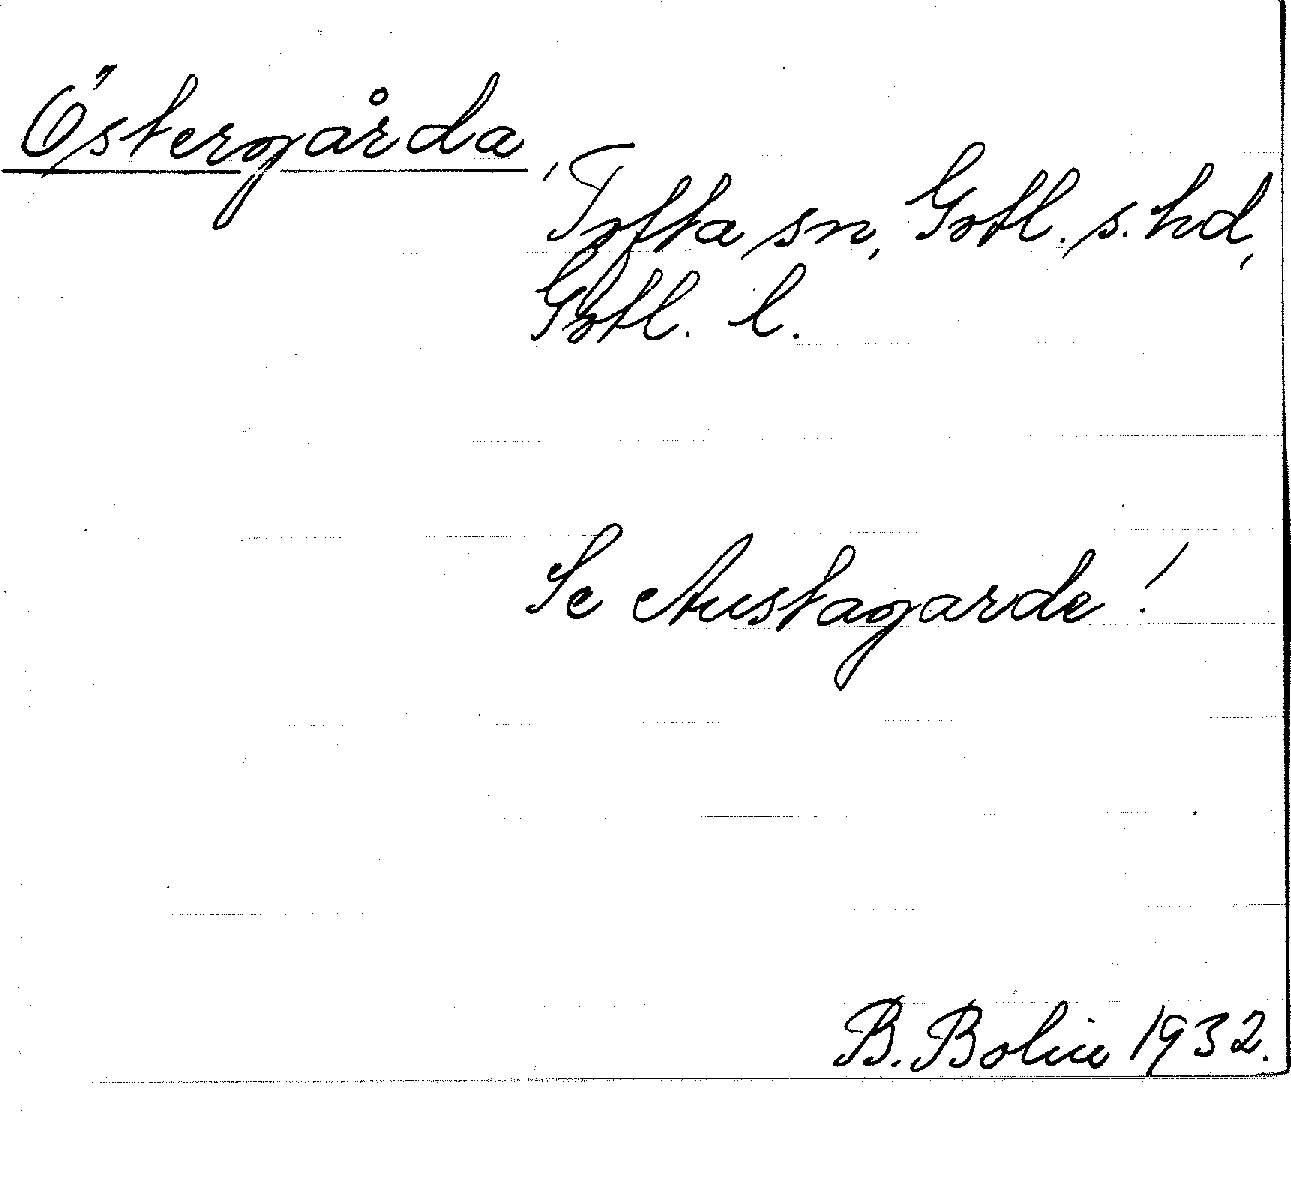 Östergårda, Tofta sn, Gotl. s. hd,
Gotl. l.
Se Austagarde!
B. Bolin 1932.